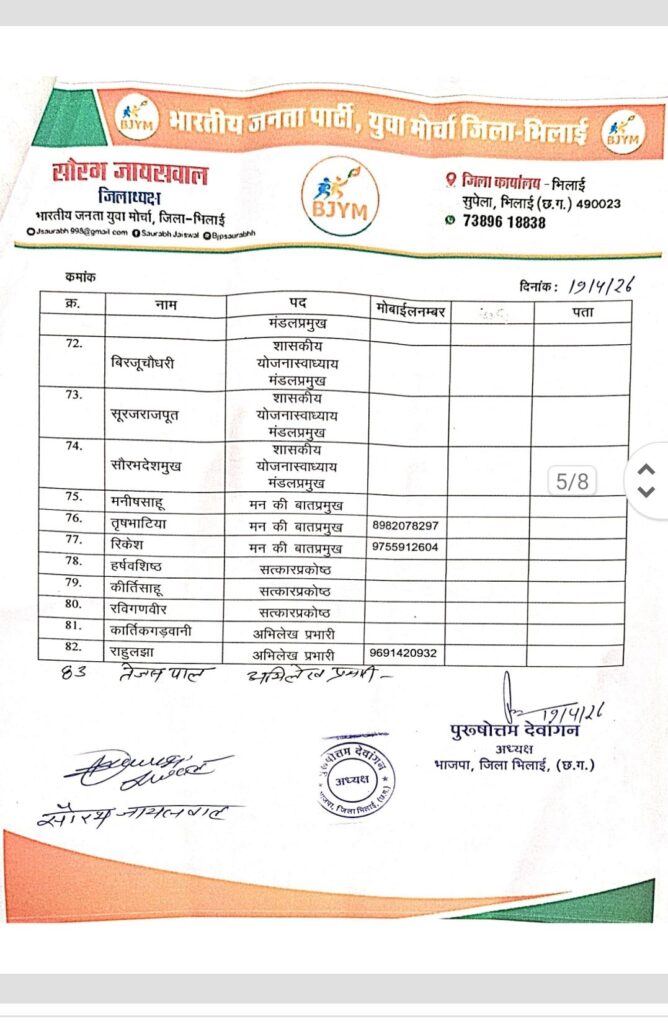 BJYM
भारतीय जनता पार्टी, युवा मोर्चा जिला-भिलाई
BJYM
सौरभ जायसवाल
जिलाध्यक्ष
भारतीय जनता युवा मोर्चा, जिला-भिलाई
Jsaurabh 998@gmail com Saurabh Jaiswal Bjpsaurabhh
BJYM
जिला कार्यालय - भिलाई
सुपेला, भिलाई (छ.ग.) 490023
73896 18838
कमांक
दिनांक : 19/4/26
क्र. नाम पद मोबाईलनम्बर पता
मंडलप्रमुख
72. बिरजूचौधरी शासकीय
योजनास्वाध्याय
मंडलप्रमुख
73. सूरजराजपूत शासकीय
योजनास्वाध्याय
मंडलप्रमुख
74. सौरभदेशमुख शासकीय
योजनास्वाध्याय
मंडलप्रमुख
75. मनीषसाहू मन की बातप्रमुख
76. तृषभाटिया मन की बातप्रमुख 8982078297
77. रिकेश मन की बातप्रमुख 9755912604
78. हर्षवशिष्ठ सत्कारप्रकोष्ठ
79. कीर्तिसाहू सत्कारप्रकोष्ठ
80. रविगणवीर सत्कारप्रकोष्ठ
81. कार्तिकगड़वानी अभिलेख प्रभारी
82. राहुलझा अभिलेख प्रभारी 9691420932
83 तेजस पाल अभिलेख प्रभारी
5/8
19/4/26
पुरूषोत्तम देवांगन
अध्यक्ष
भाजपा, जिला भिलाई, (छ.ग.)
पुरूषोत्तम देवांगन
अध्यक्ष
भाजपा, जिला भिलाई, (छ.ग.)
सौरभ जायसवाल